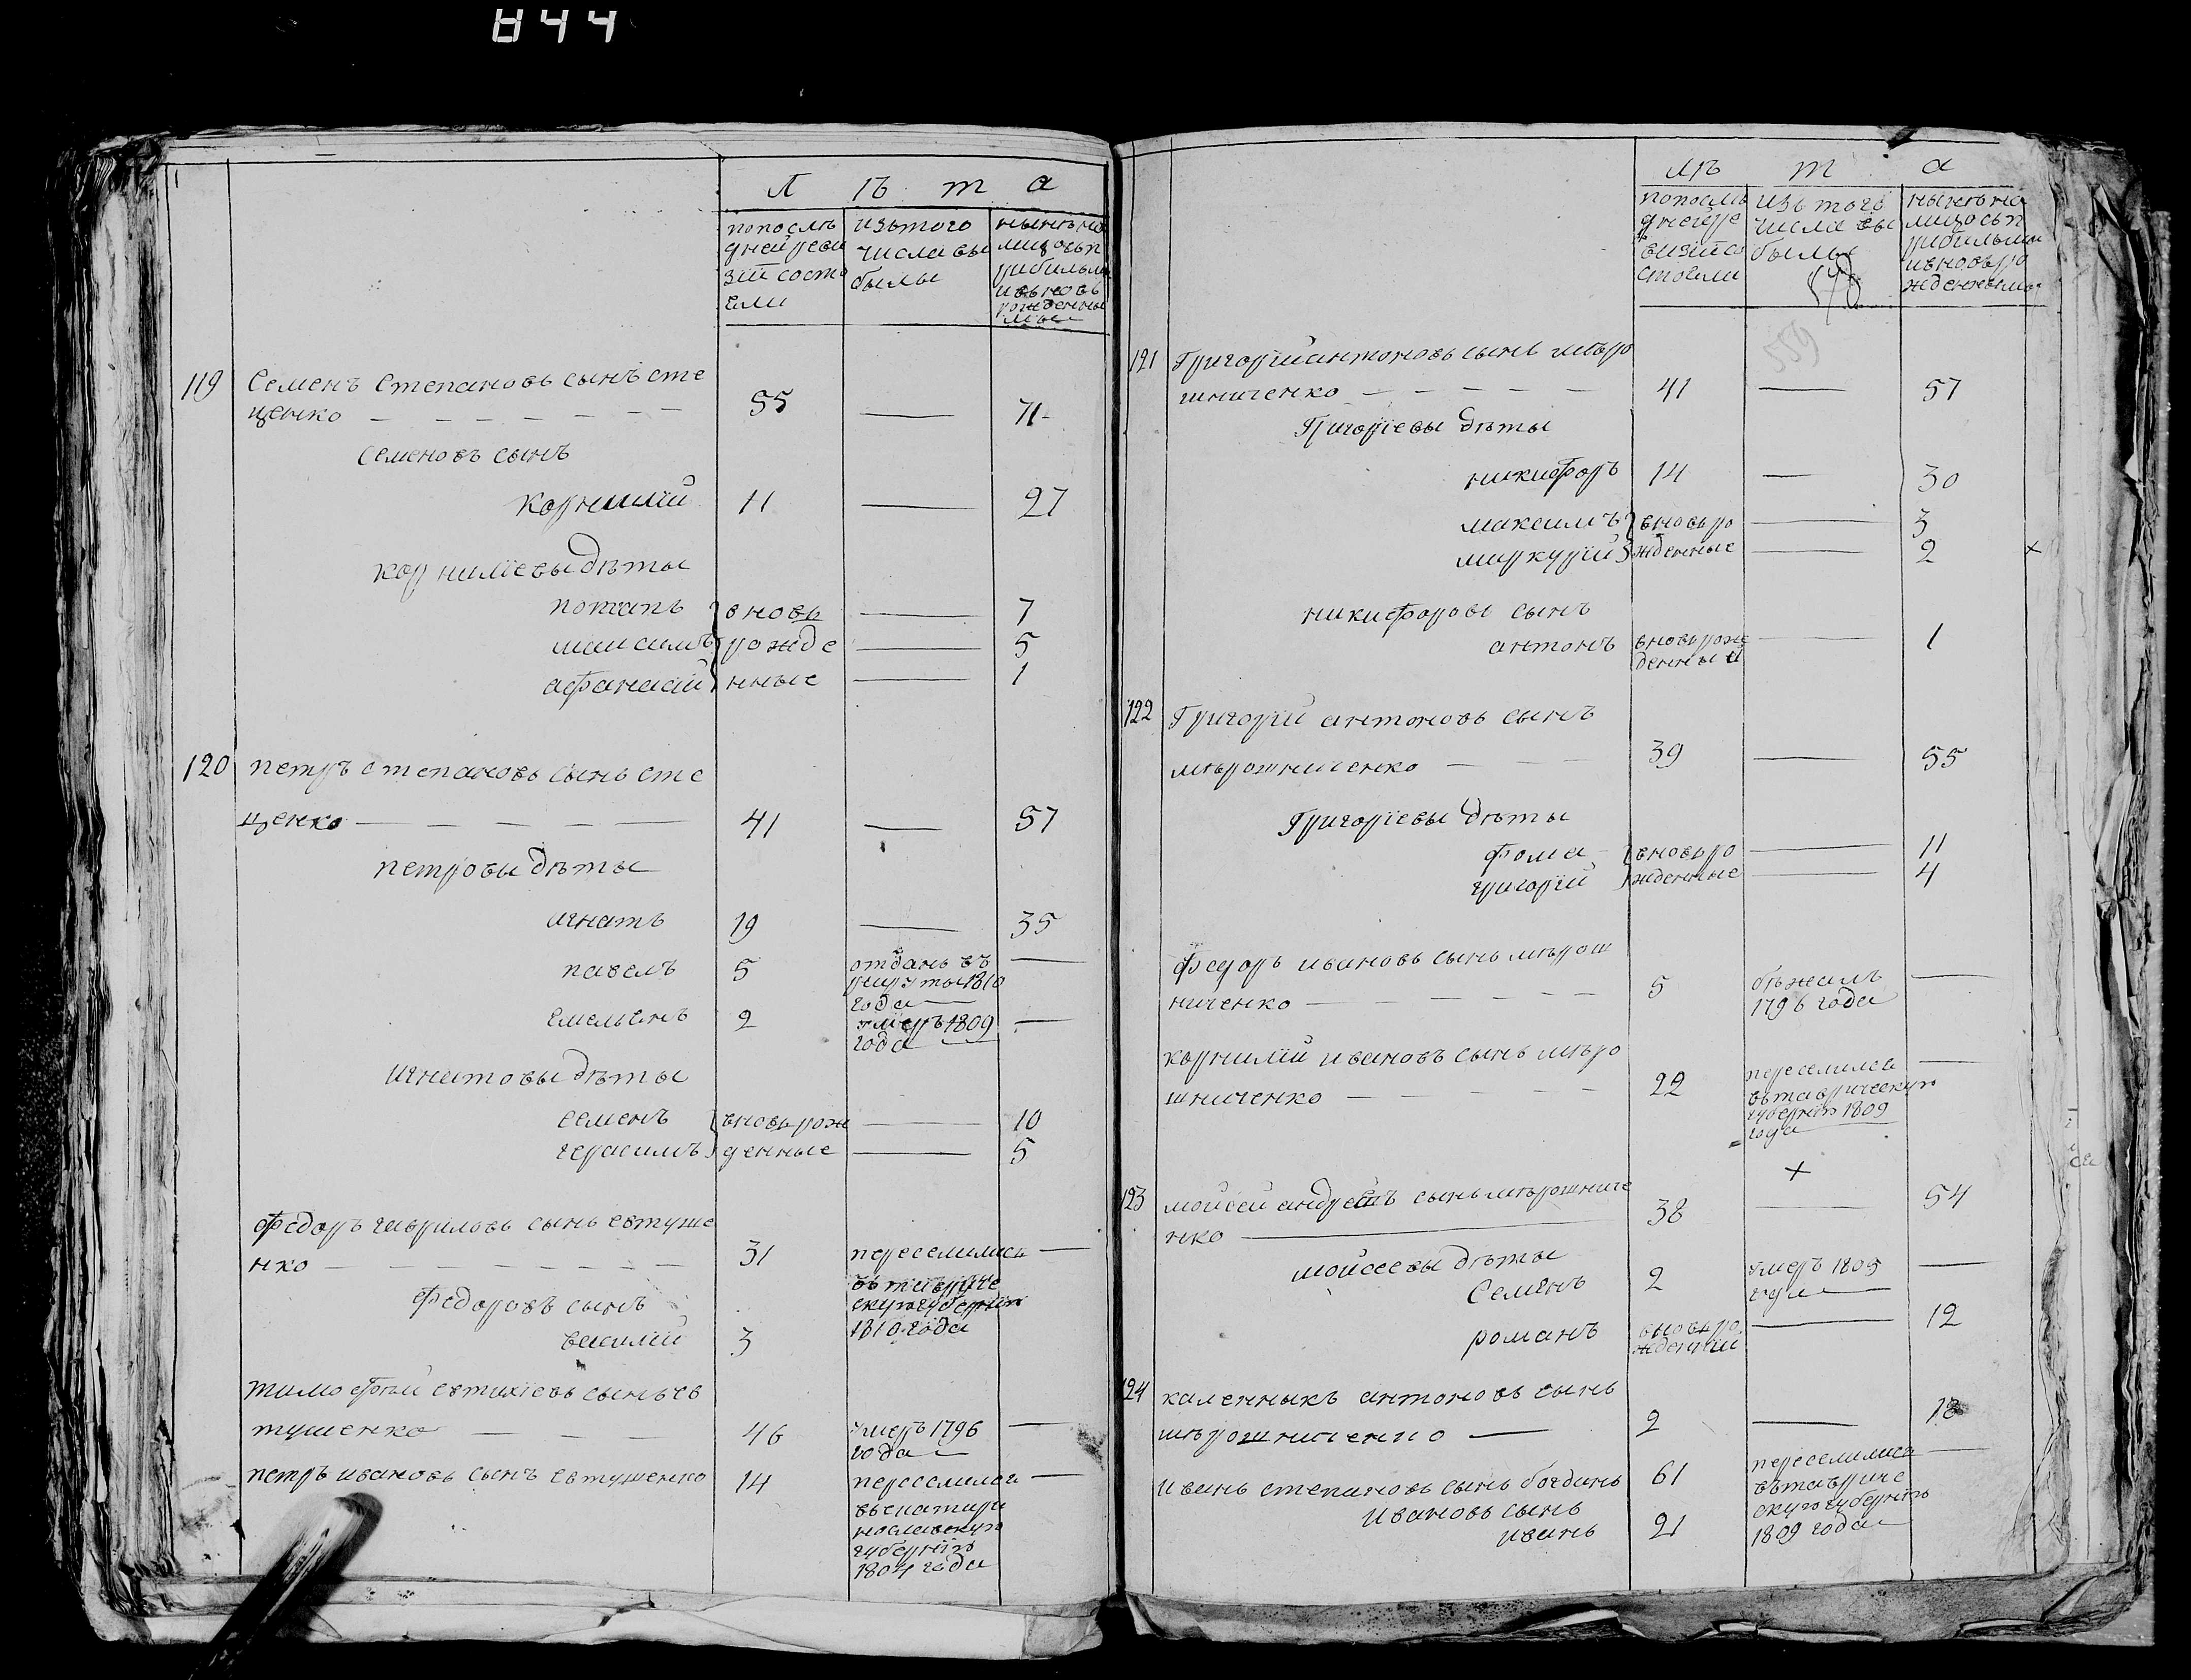 844
Л ѣ т а
попослѣ изътого нынѣна
дней реви числавы лицосъп
зїи состо были рибылыми
яли ивновь
рожденны
ми
119 Семенъ Степановъ сынъ сте
ценко — 55 — 71
Семеновъ сынъ
Корнилій 11 — 27
Корнилїевы дѣты
потапъ вновь — 7
максимъ рожде — 5
афанасій нные — 1
120 петръ степановъ сынъ сте
ценко — 41 — 57
петровы дѣты
игнатъ 19 — 35
павелъ 5 отданъ въ —
рекруты 1810
года
емельянъ 2 умеръ 1809 —
года
игнатовы дѣты
семенъ вновь рож — 10
герасимъ денные — 5
федоръ гавриловъ сынъ евтуше
нко — 31 переселились —
въ тавриче
скую губернїю
1810 года
федоровъ сынъ
василій 3
тимофѣй евтихїевъ сынъ ев
тушенко — 46 умеръ 1796 —
года
петръ ивановъ сынъ евтушенко 14 переселился —
въ екатери
нославскую
губернїю
1804 года
лѣ т а
попослѣ изъ того нынѣ на
дней ре числа вы лицо съ п
визїи со были рибылыми
стояли и вновь ро
жденными
559
121 Григорїй антоновъ сынъ мѣро
шниченко — 41 — 57
Григорїевы дѣты
никифоръ 14 — 30
максимъ вновь ро — 3
меркурїй жденные — 2 ×
никифоровъ сынъ
антонъ вновь рож — 1
денный
122 Григорїй антоновъ сынъ
мѣрошниченко — 39 — 55
Григорїевы дѣты
фома вновь ро — 11
григорїй жденные — 4
федоръ ивановъ сынъ мѣрош
ниченко — 5 бѣжалъ —
1796 года
корнилїй ивановъ сынъ мѣро
шниченко — 22 переселился —
въ таврическую
губернїю 1809
года
×
123 мойсей андреевъ сынъ мѣрошниче
нко — 38 — 54
мойсеевы дѣты
Семенъ 2 умеръ 1805 —
года
романъ вновь ро — 12
жденный
124 каленныкъ антоновъ сынъ
мѣрошниченко — 2 — 18
иванъ степановъ сынъ богданъ 61 переселились —
въ тавриче
скую губернїю
1809 года
ивановъ сынъ
иванъ 21